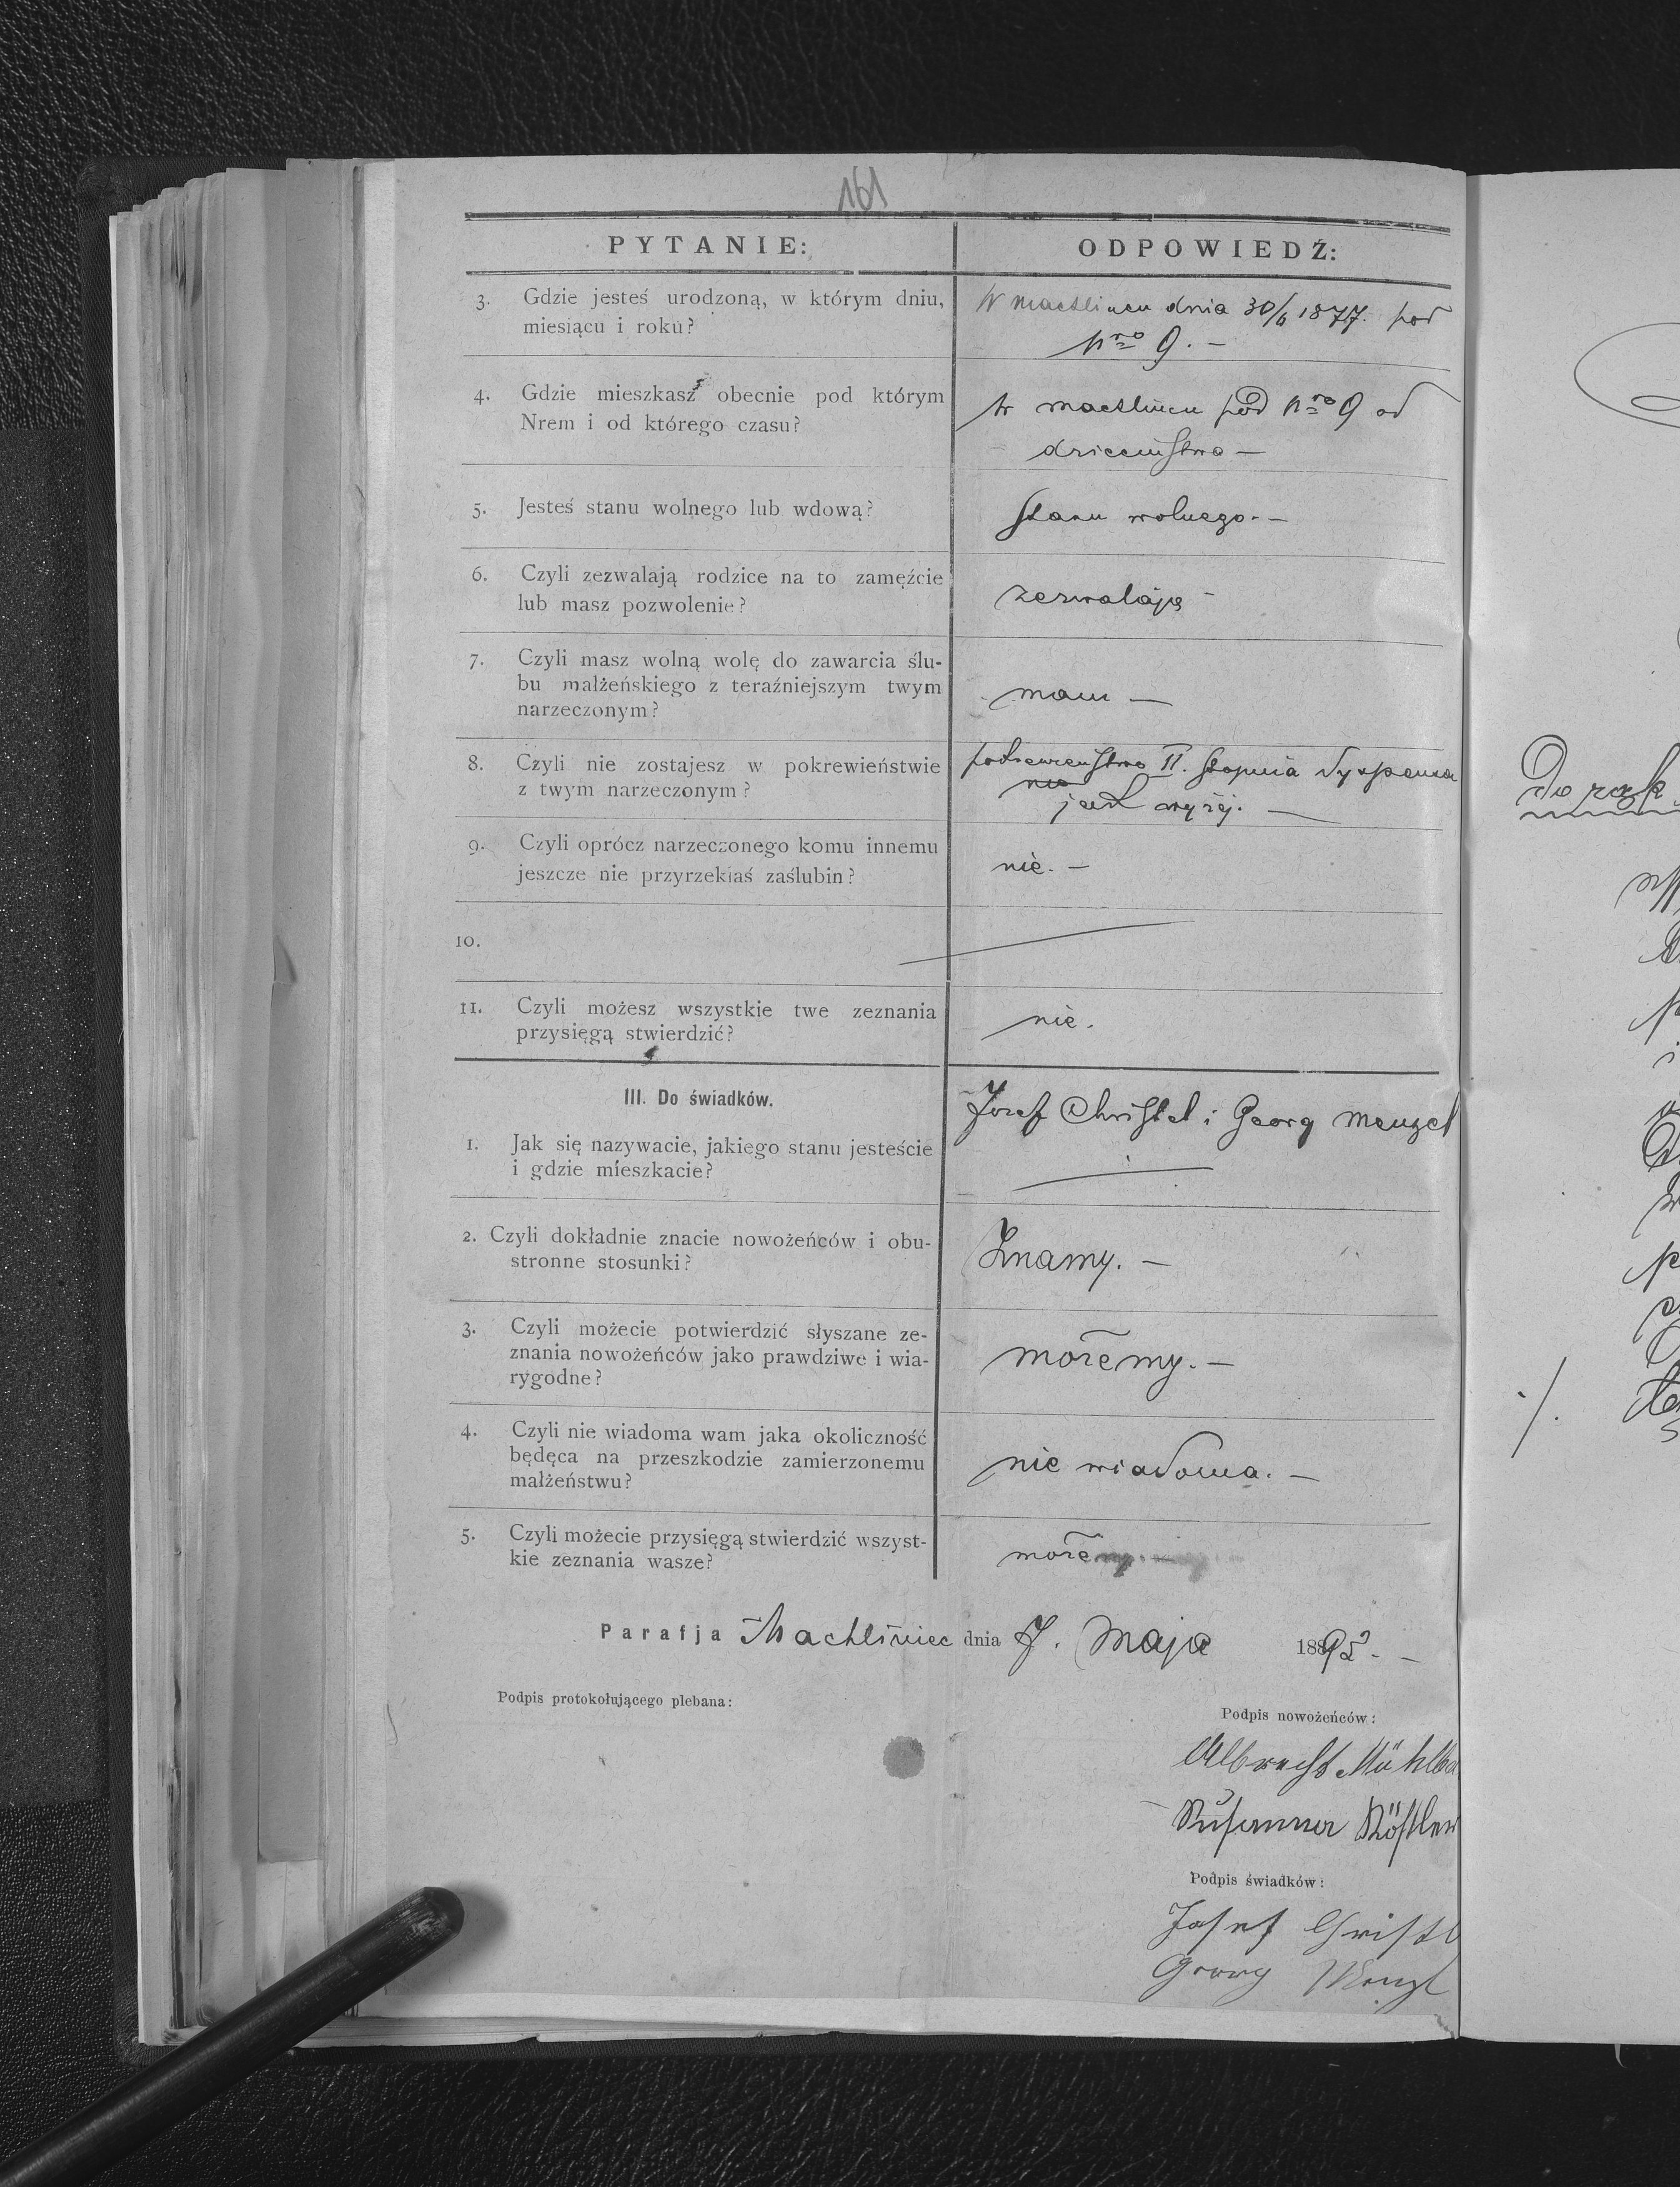 161
PYTANIE:
ODPOWIEDŹ:
3. Gdzie jesteś urodzoną, w którym dniu,
miesiącu i roku?
W Machlincu dnia 30/6 1877. pod
Nro 9. —
4. Gdzie mieszkasz obecnie pod którym
Nrem i od którego czasu?
w Machlincu pod Nro 9 od
dzieciństwa —
5. Jesteś stanu wolnego lub wdową?
stanu wolnego. —
6. Czyli zezwalają rodzice na to zamęźcie
lub masz pozwolenie?
zezwalają —
7. Czyli masz wolną wolę do zawarcia ślu-
bu małżeńskiego z teraźniejszym twym
narzeczonym?
mam —
8. Czyli nie zostajesz w pokrewieństwie
z twym narzeczonym?
II. stopnia dyspensa
jest wyżej. —
9. Czyli oprócz narzeczonego komu innemu
jeszcze nie przyrzekłaś zaślubin?
nie. —
10.
11. Czyli możesz wszystkie twe zeznania
przysięgą stwierdzić?
nie.
III. Do świadków.
1. Jak się nazywacie, jakiego stanu jesteście
i gdzie mieszkacie?
Josef Christel i Georg Menzel
2. Czyli dokładnie znacie nowożeńców i obu-
stronne stosunki?
Znamy. —
3. Czyli możecie potwierdzić słyszane ze-
znania nowożeńców jako prawdziwe i wia-
rygodne?
możemy. —
4. Czyli nie wiadoma wam jaka okoliczność
będęca na przeszkodzie zamierzonemu
małżeństwu?
nie wiadoma. —
5. Czyli możecie przysięgą stwierdzić wszyst-
kie zeznania wasze?
możemy. —
Parafja Machliniec dnia 7. Maja 1895. —
Podpis protokołującego plebana:
Podpis nowożeńców:
Albrecht Mühlba
Susanna Rößler
Podpis świadków:
Josef Christl
Georg Menzl
Do rąk